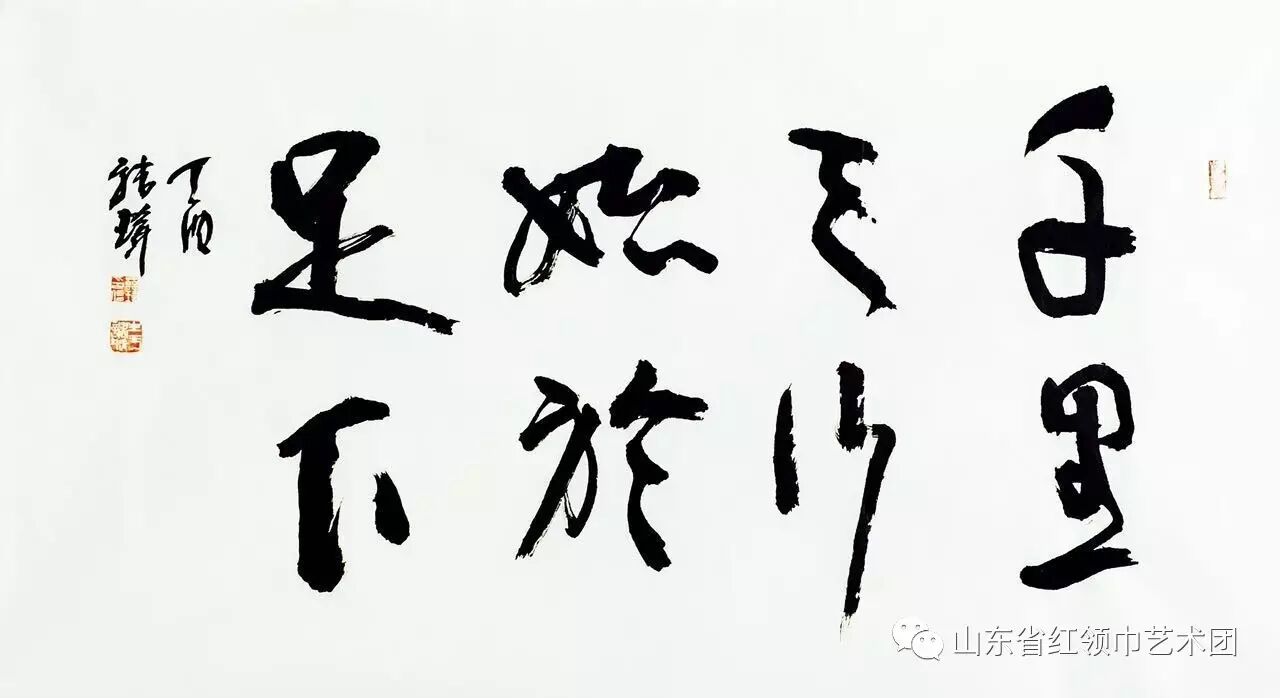 千里
之行
始於
足下
丁酉
山东省红领巾艺术团